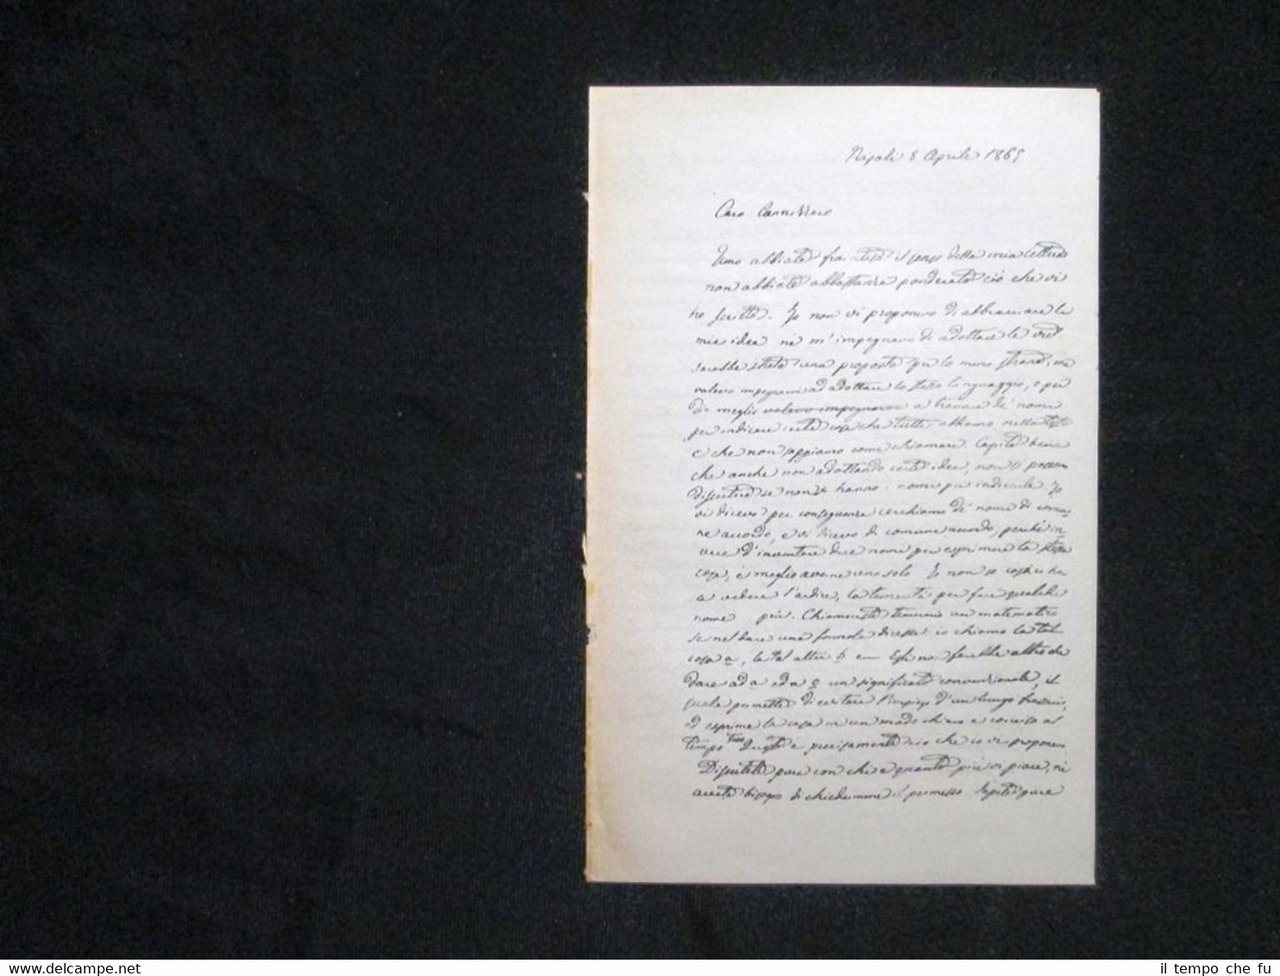 Napoli 8 Aprile 1865
Caro Cannizzaro
Temo abbiate fra inteso il senso della mia lettera
non abbiate abbastanza ponderato ciò che vi
ho scritto. Io non vi proponevo di abbracciare le
mie idee nè m'impegnavo di adottare le vostre
sarebbe stata una proposta per lo meno strana, ma
volevo impegnarvi ad adottare lo stesso linguaggio, o per
dir meglio volevo impegnarvi a trovare de' nomi
per indicare certe cose che tutti abbiamo nella testa
e che non sappiamo come chiamare. Capite bene
che anche non adottando certe idee, non si possono
discutere se non si hanno nomi per indicarle. Io
vi dicevo per conseguenza cerchiamo de' nomi di comu-
ne accordo, e vi dicevo di comune accordo, perchè in-
vece d'inventare due nomi per esprimere la stessa
cosa, è meglio averne uno solo. Io non so cosa ci ha
a vedere l'ardire, la temerità per fare qualche
nome più. Chiamereste temerario un matematico
se nel dare una formola dicesse: io chiamo la tal
cosa a, la tal altra b ecc. Egli non farebbe altro che
dare ad a e da b un significato convenzionale, il
quale permette di evitare l'impiego d'un lungo frasario,
ed esprime la cosa in un modo chiaro e conciso al
tempo stesso. Questo è precisamente ciò che io vi proponevo.
Discutete pure con chi e quanto più vi piace, nè
avete bisogno di chiedermene il permesso. Sapete pure
il tempo che fu